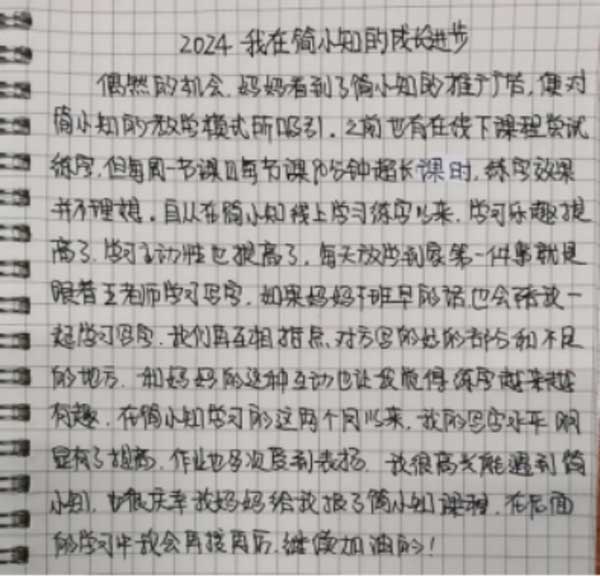 2024 我在简小知的成长进步
偶然的机会，妈妈看到了简小知的推广后，便对
简小知的教学模式所吸引。之前也有在线下课程尝试
练字，但每周一节课且每节课90分钟超长课时，练字效果
并不理想。自从在简小知线上学习练字以来，学习乐趣提
高了，学习主动性也提高了，每天放学到家第一件事就是
跟着王老师学习写字，如果妈妈下班早的话，也会陪我一
起学习写字，我们再互相指点对方写的好的部分和不足
的地方，和妈妈的这种互动也让我觉得练字越来越
有趣。在简小知学习的这两个月以来，我的写字水平明
显有了提高，作业也多次受到表扬，我很高兴能遇到简
小知，也很庆幸我妈妈给我报了简小知课程，在后面
的学习中我会再接再厉，继续加油的！